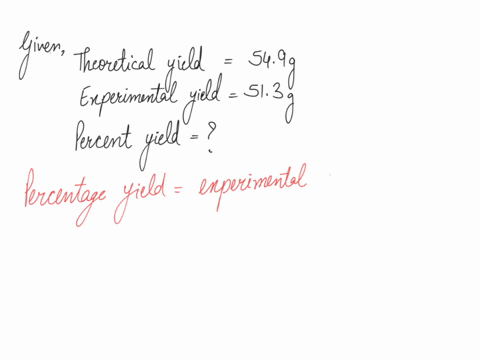 Given, Theoretical yield = 54.9g
Experimental yield = 51.3g
Percent yield = ?
Percentage yield = experimental